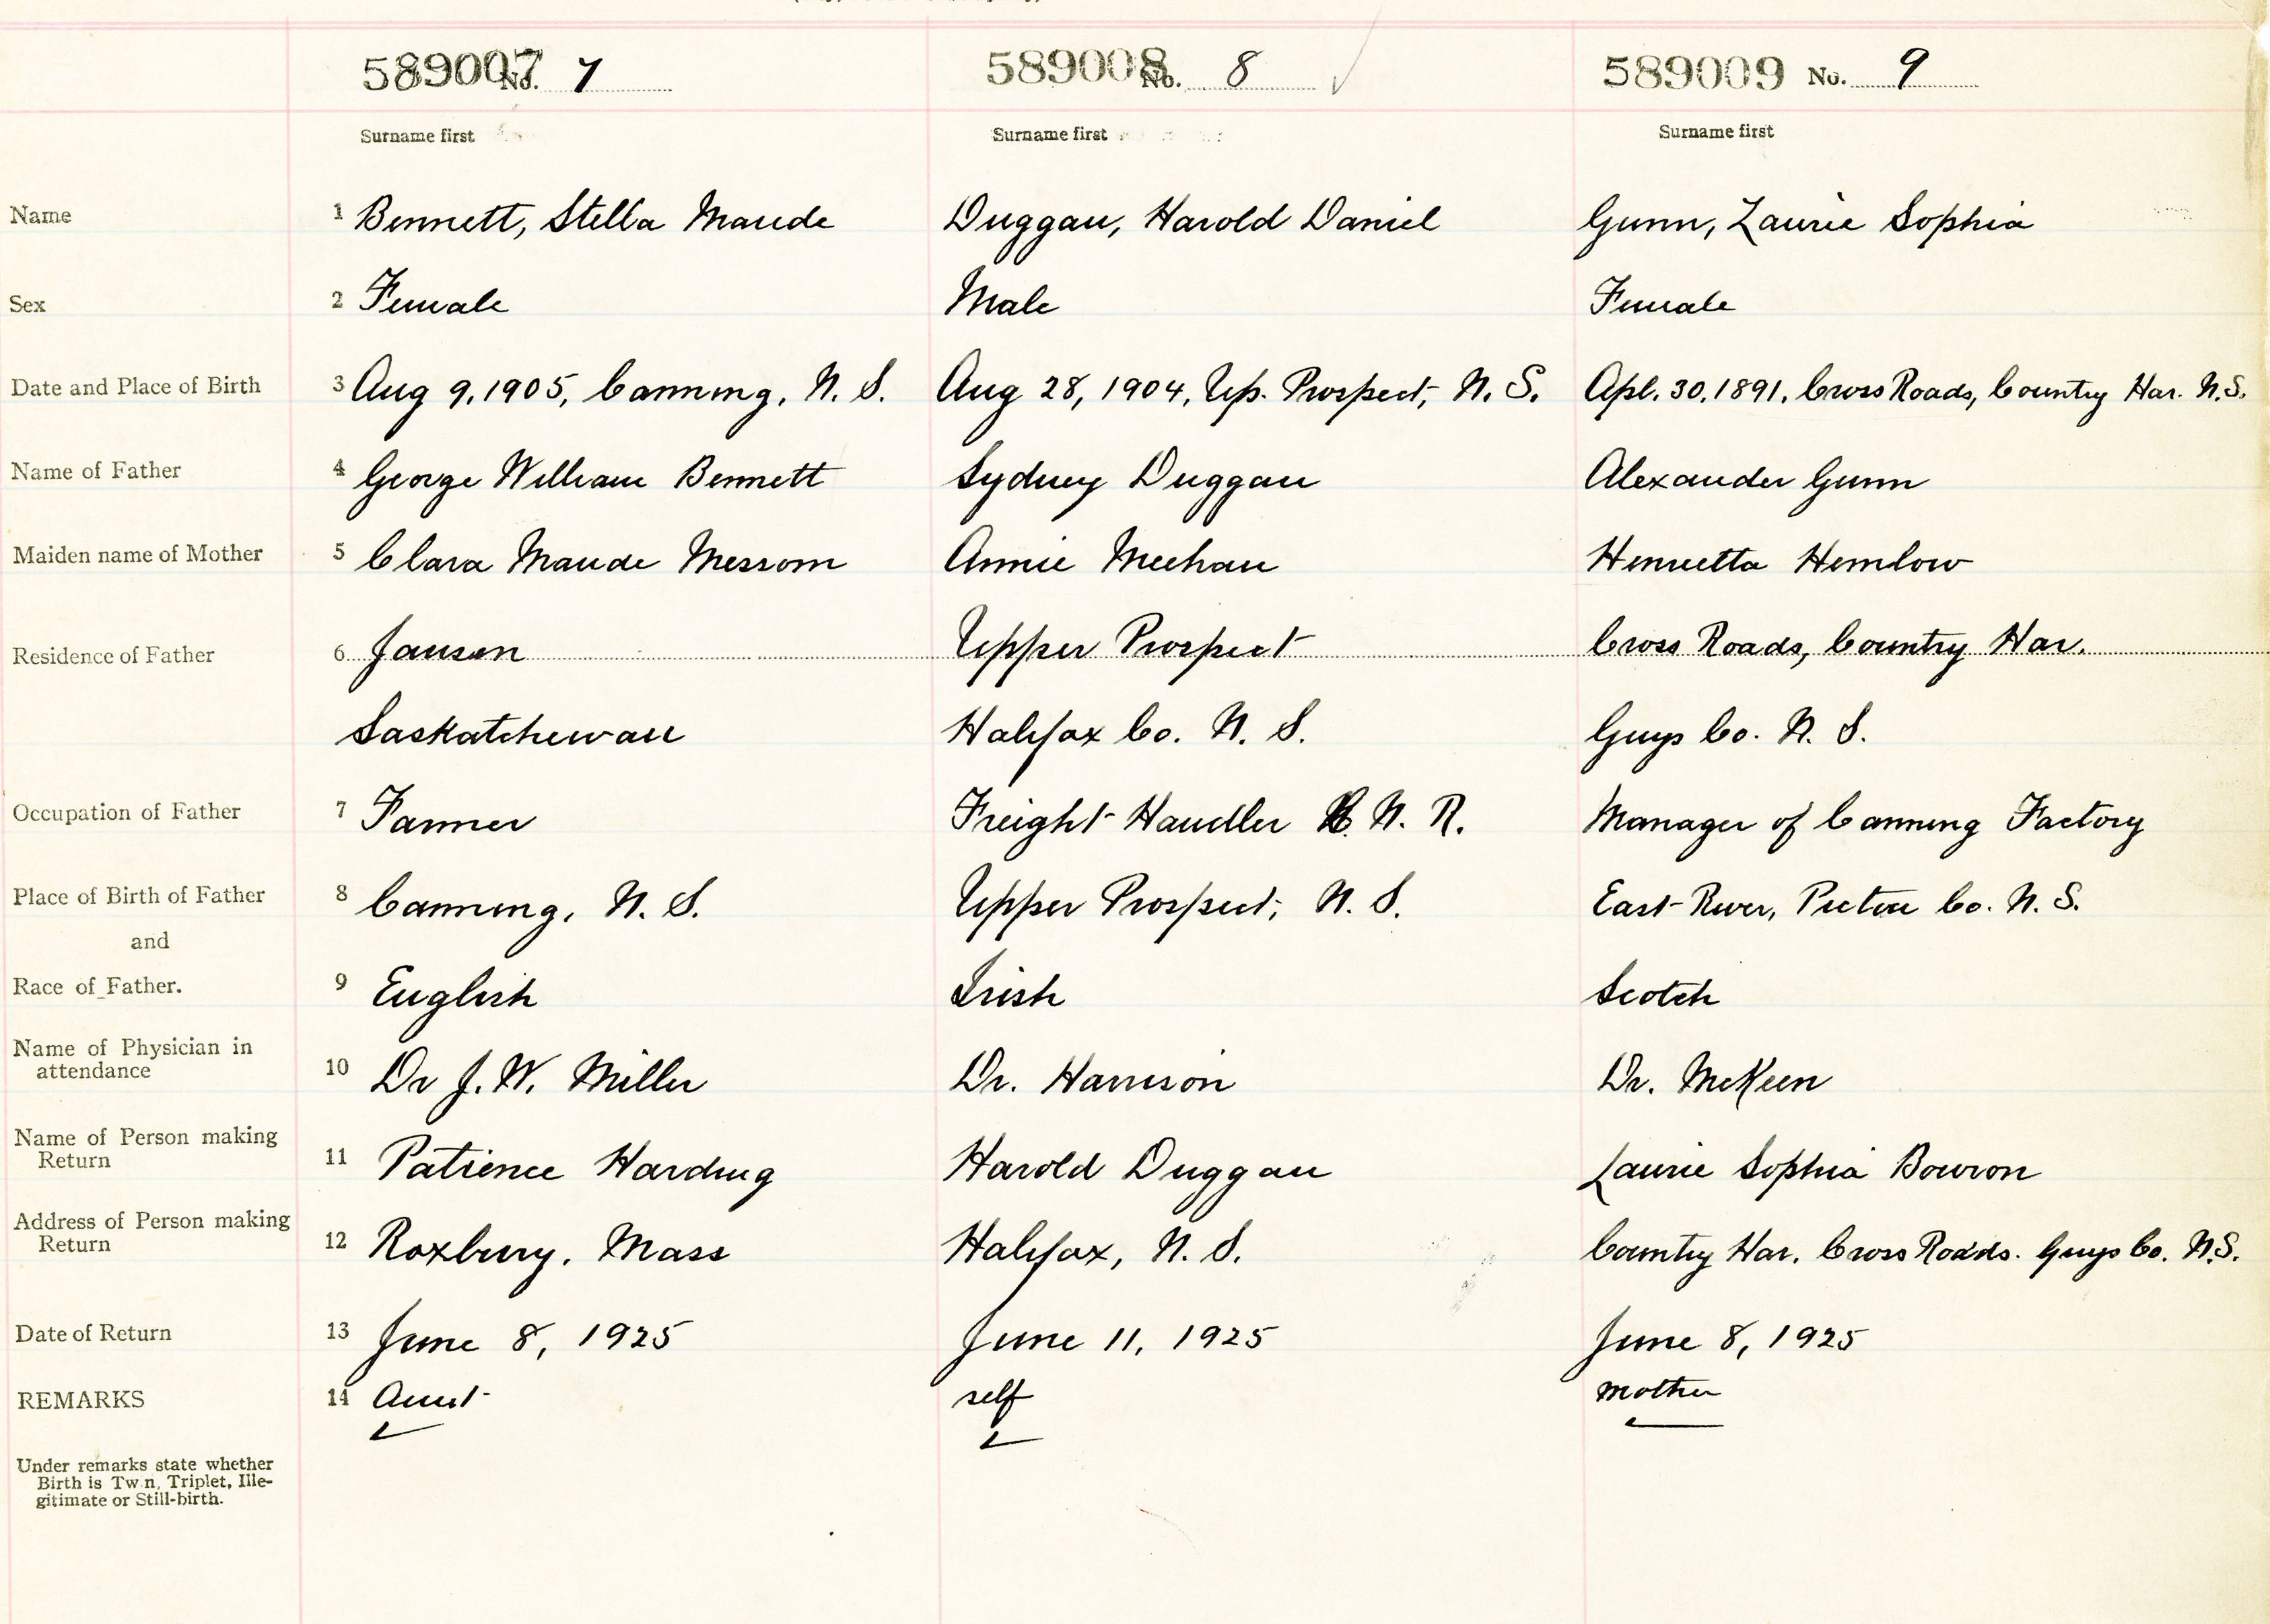 589007 No. 7 589008 No. 8 589009 No. 9
Surname first Surname first Surname first
Name 1 Bennett, Stella Maude Duggan, Harold Daniel Gunn, Laurie Sophia
Sex 2 Female Male Female
Date and Place of Birth 3 Aug 9, 1905, Canning, N. S. Aug 28, 1904, Up. Prospect, N. S. Apl. 30, 1891, Cross Roads, Country Har. N.S.
Name of Father 4 George William Bennett Sydney Duggan Alexander Gunn
Maiden name of Mother 5 Clara Maude Messom Annie Meehan Henrietta Hemlow
Residence of Father 6 Jansen Upper Prospect Cross Roads, Country Har.
Saskatchewan Halifax Co. N. S. Guys Co. N. S.
Occupation of Father 7 Farmer Freight Handler C. N. R. Manager of Canning Factory
Place of Birth of Father 8 Canning, N. S. Upper Prospect, N. S. East River, Pictou Co. N. S.
and
Race of Father. 9 English Irish Scotch
Name of Physician in
attendance 10 Dr J. W. Miller Dr. Harrison Dr. McKeen
Name of Person making
Return 11 Patience Harding Harold Duggan Laurie Sophia Bowron
Address of Person making
Return 12 Roxbury, Mass Halifax, N. S. Country Har. Cross Roads. Guys Co. N.S.
Date of Return 13 June 8, 1925 June 11, 1925 June 8, 1925
REMARKS 14 Aunt self mother
Under remarks state whether
Birth is Twin, Triplet, Ille-
gitimate or Still-birth.